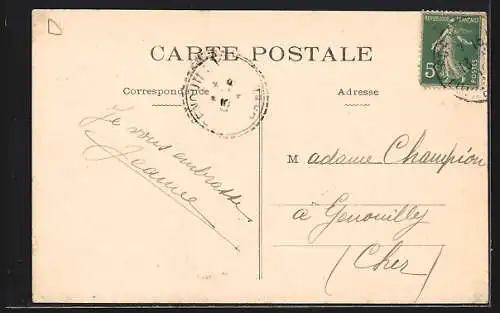 CARTE POSTALE
Correspondance
Adresse
RÉPUBLIQUE FRANÇAISE
5
POSTES
Je vous embrasse
Jeanne
Madame Champion
à Genouilly
(Cher)